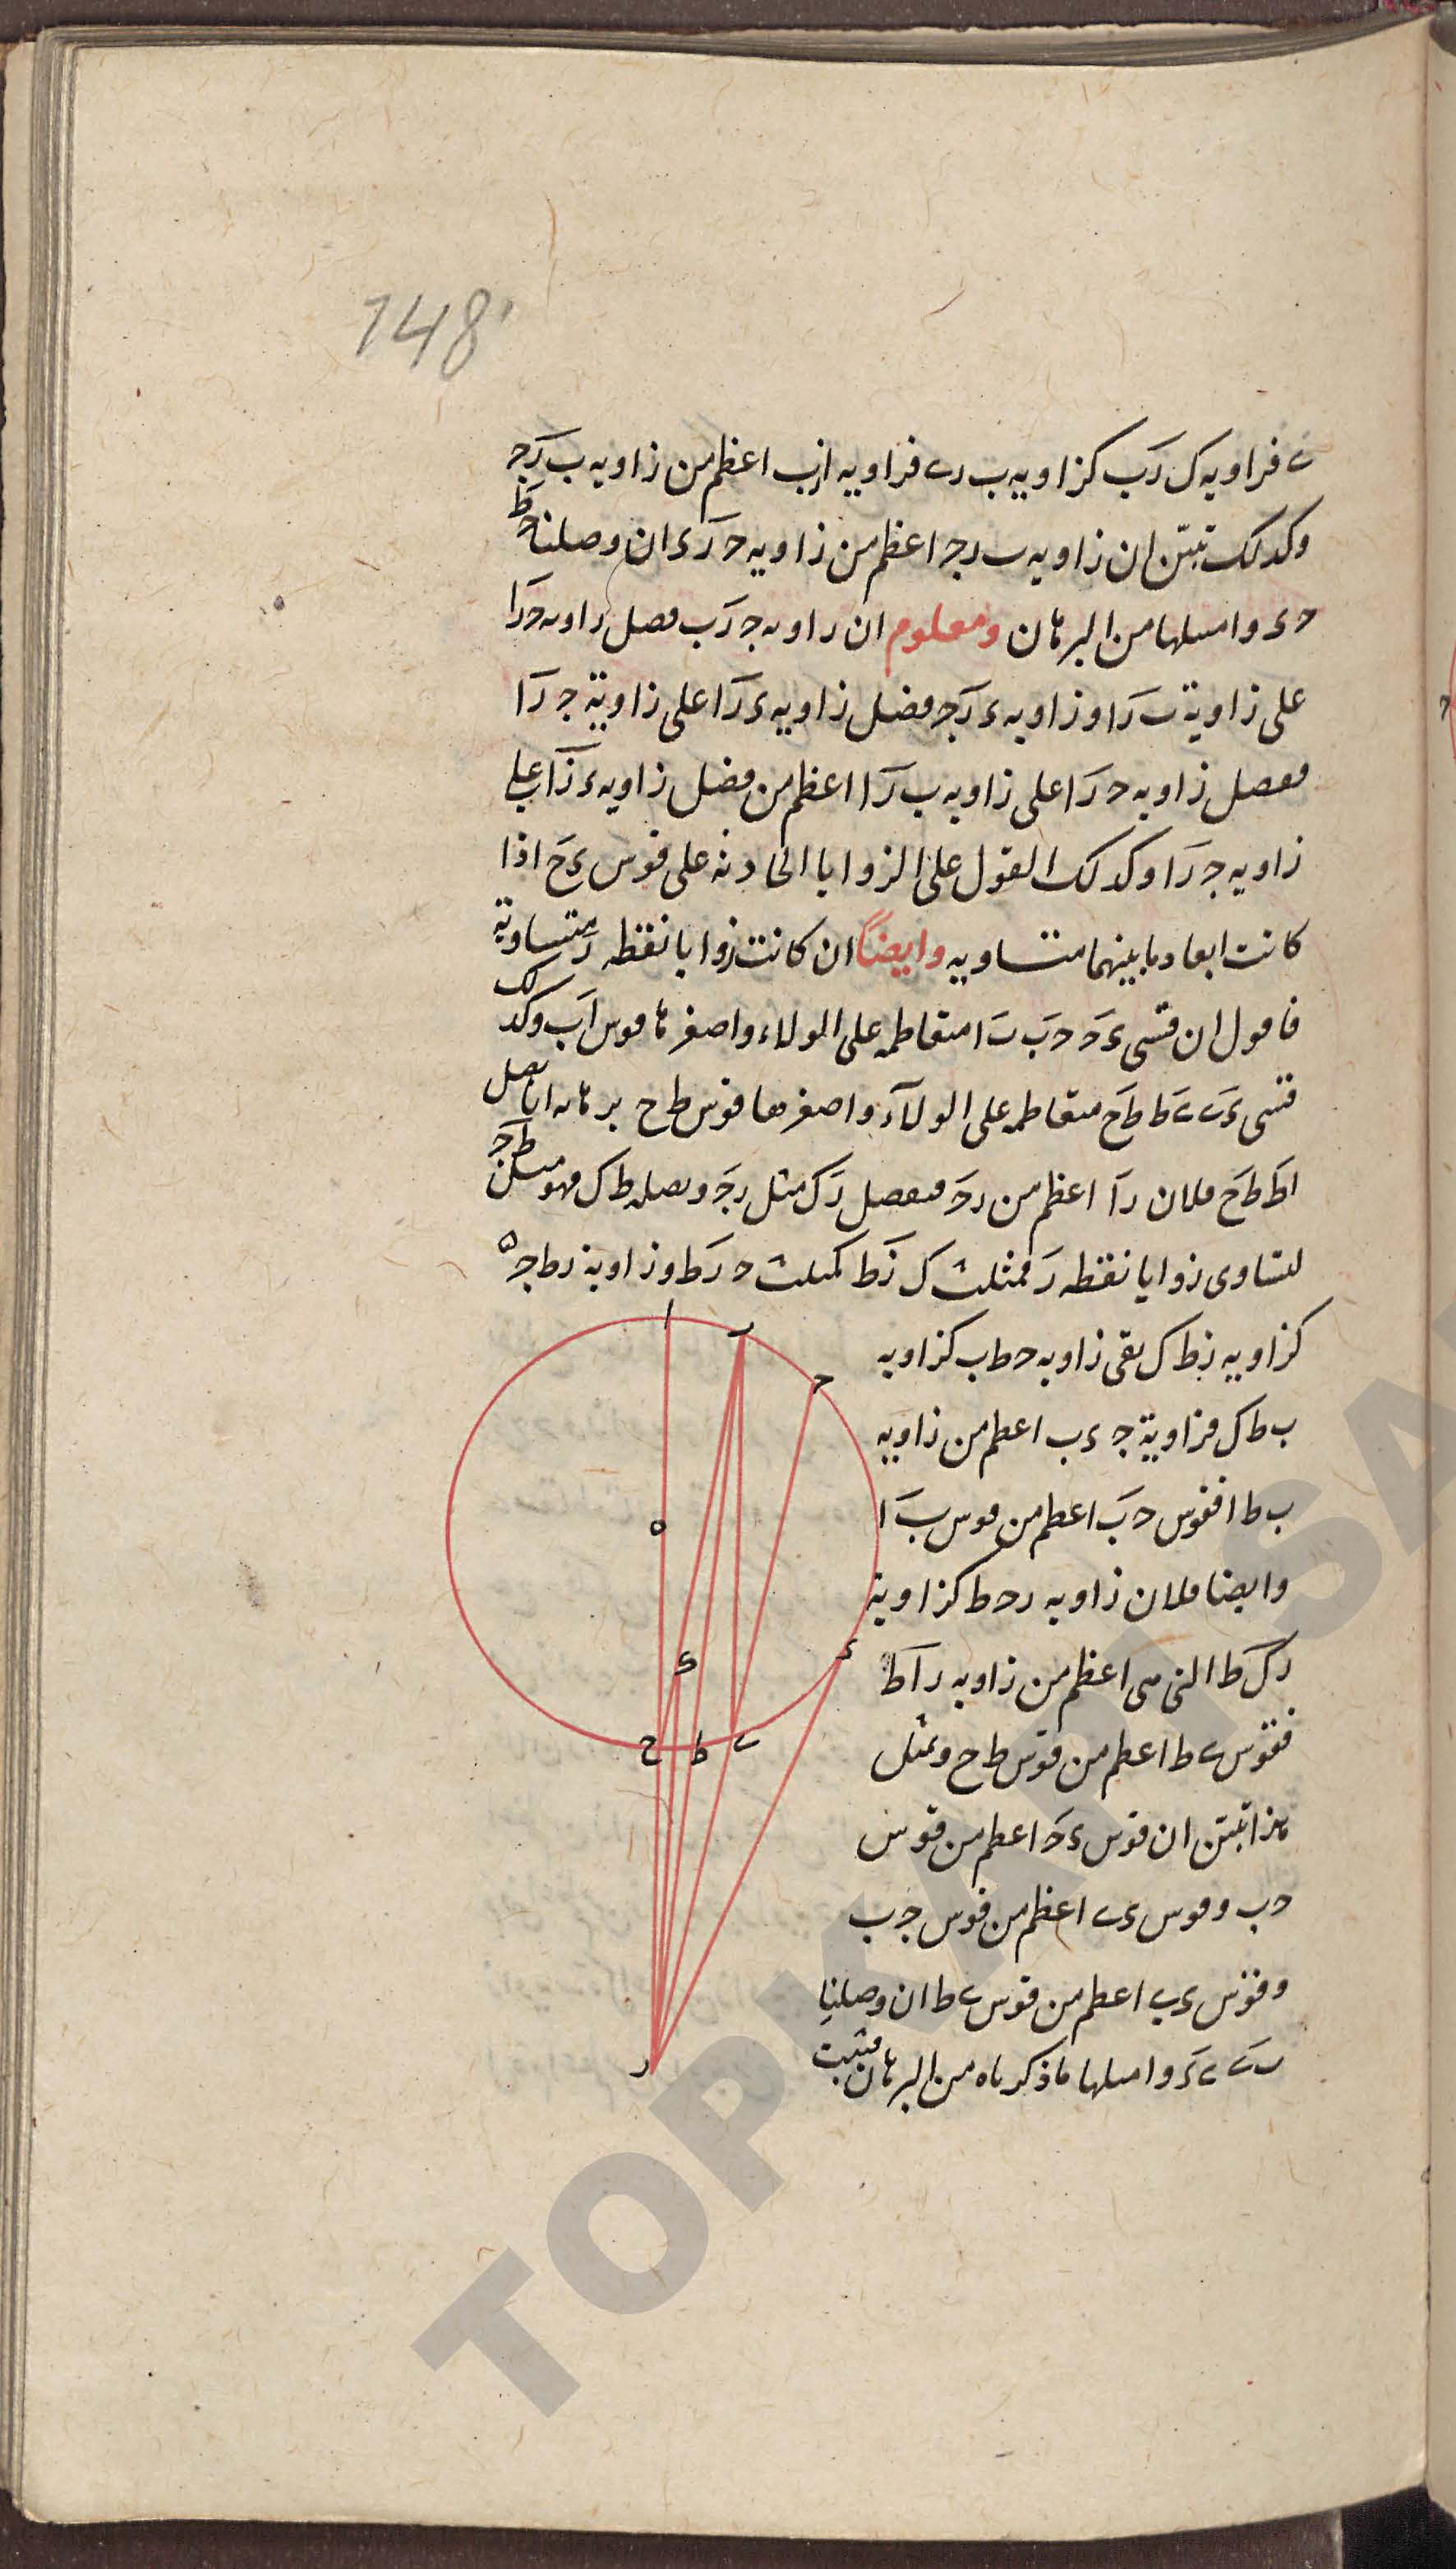 148
ى فزاويه ك ر ب كزاويه ب ر ى فزاويه ا ز ب اعظم من زاويه ب ر ج
وكذلك تبين ان زاويه ب ر ج اعظم من زاويه ح ر ء ان وصلنا ح ط
ح ء وامثلها من البرهان ومعلوم ان زاويه ج ر ب فضل زاويه ح ر ا
على زاوية ب ر ا وزاويه ء ر ج فضل زاويه ء ر ا على زاوية ج ر ا
ففضل زاويه ح ر ا على زاويه ب ر ا اعظم من فضل زاويه ء ر ا على
زاويه ج ر ا وكذلك القول على الزوايا الحادثه على قوس ى ح اذا
كانت ابعاد ما بينهما متساويه وايضاً ان كانت زوايا نقطه ر متساوية
فاقول ان قسى ء ح ح ب ب ا متفاضله على الولاء واصغرها قوس ا ب وكذلك
قسى ء ى ى ط ط ح متفاضله على الولآء واصغرها قوس ط ح برهانه انا نصل
ا ط ط ح فلان ر ا اعظم من ر ح فنفصل ر ك مثل ر ج ونصل ط ك فهو مثل ط ج
لتساوى زوايا نقطه ر فمثلث ك ز ط كمثلث ح ر ط وزاوية ر ط ج
كزاويه ز ط ك بقى زاويه ح ط ب كزاويه
ب ط ك فزاوية ج ء ب اعظم من زاويه
ب ط ا فقوس ح ب اعظم من قوس ب ا
وايضا فلان زاويه ر ح ط كزاوية
ر ك ط التى هى اعظم من زاويه ر ا ط
فقوس ى ط اعظم من قوس ط ح وبمثل
هذا تبين ان قوس ء ح اعظم من قوس
ح ب وقوس ء ى اعظم من قوس ج ب
وقوس ء ى اعظم من قوس ى ط ان وصلنا
ب ى ى ء وامثلها ما ذكرناه من البرهان فثبت
ا
ب
ح
ه
ء
ك
ح
ط
ى
ر
TOPKAPI SA